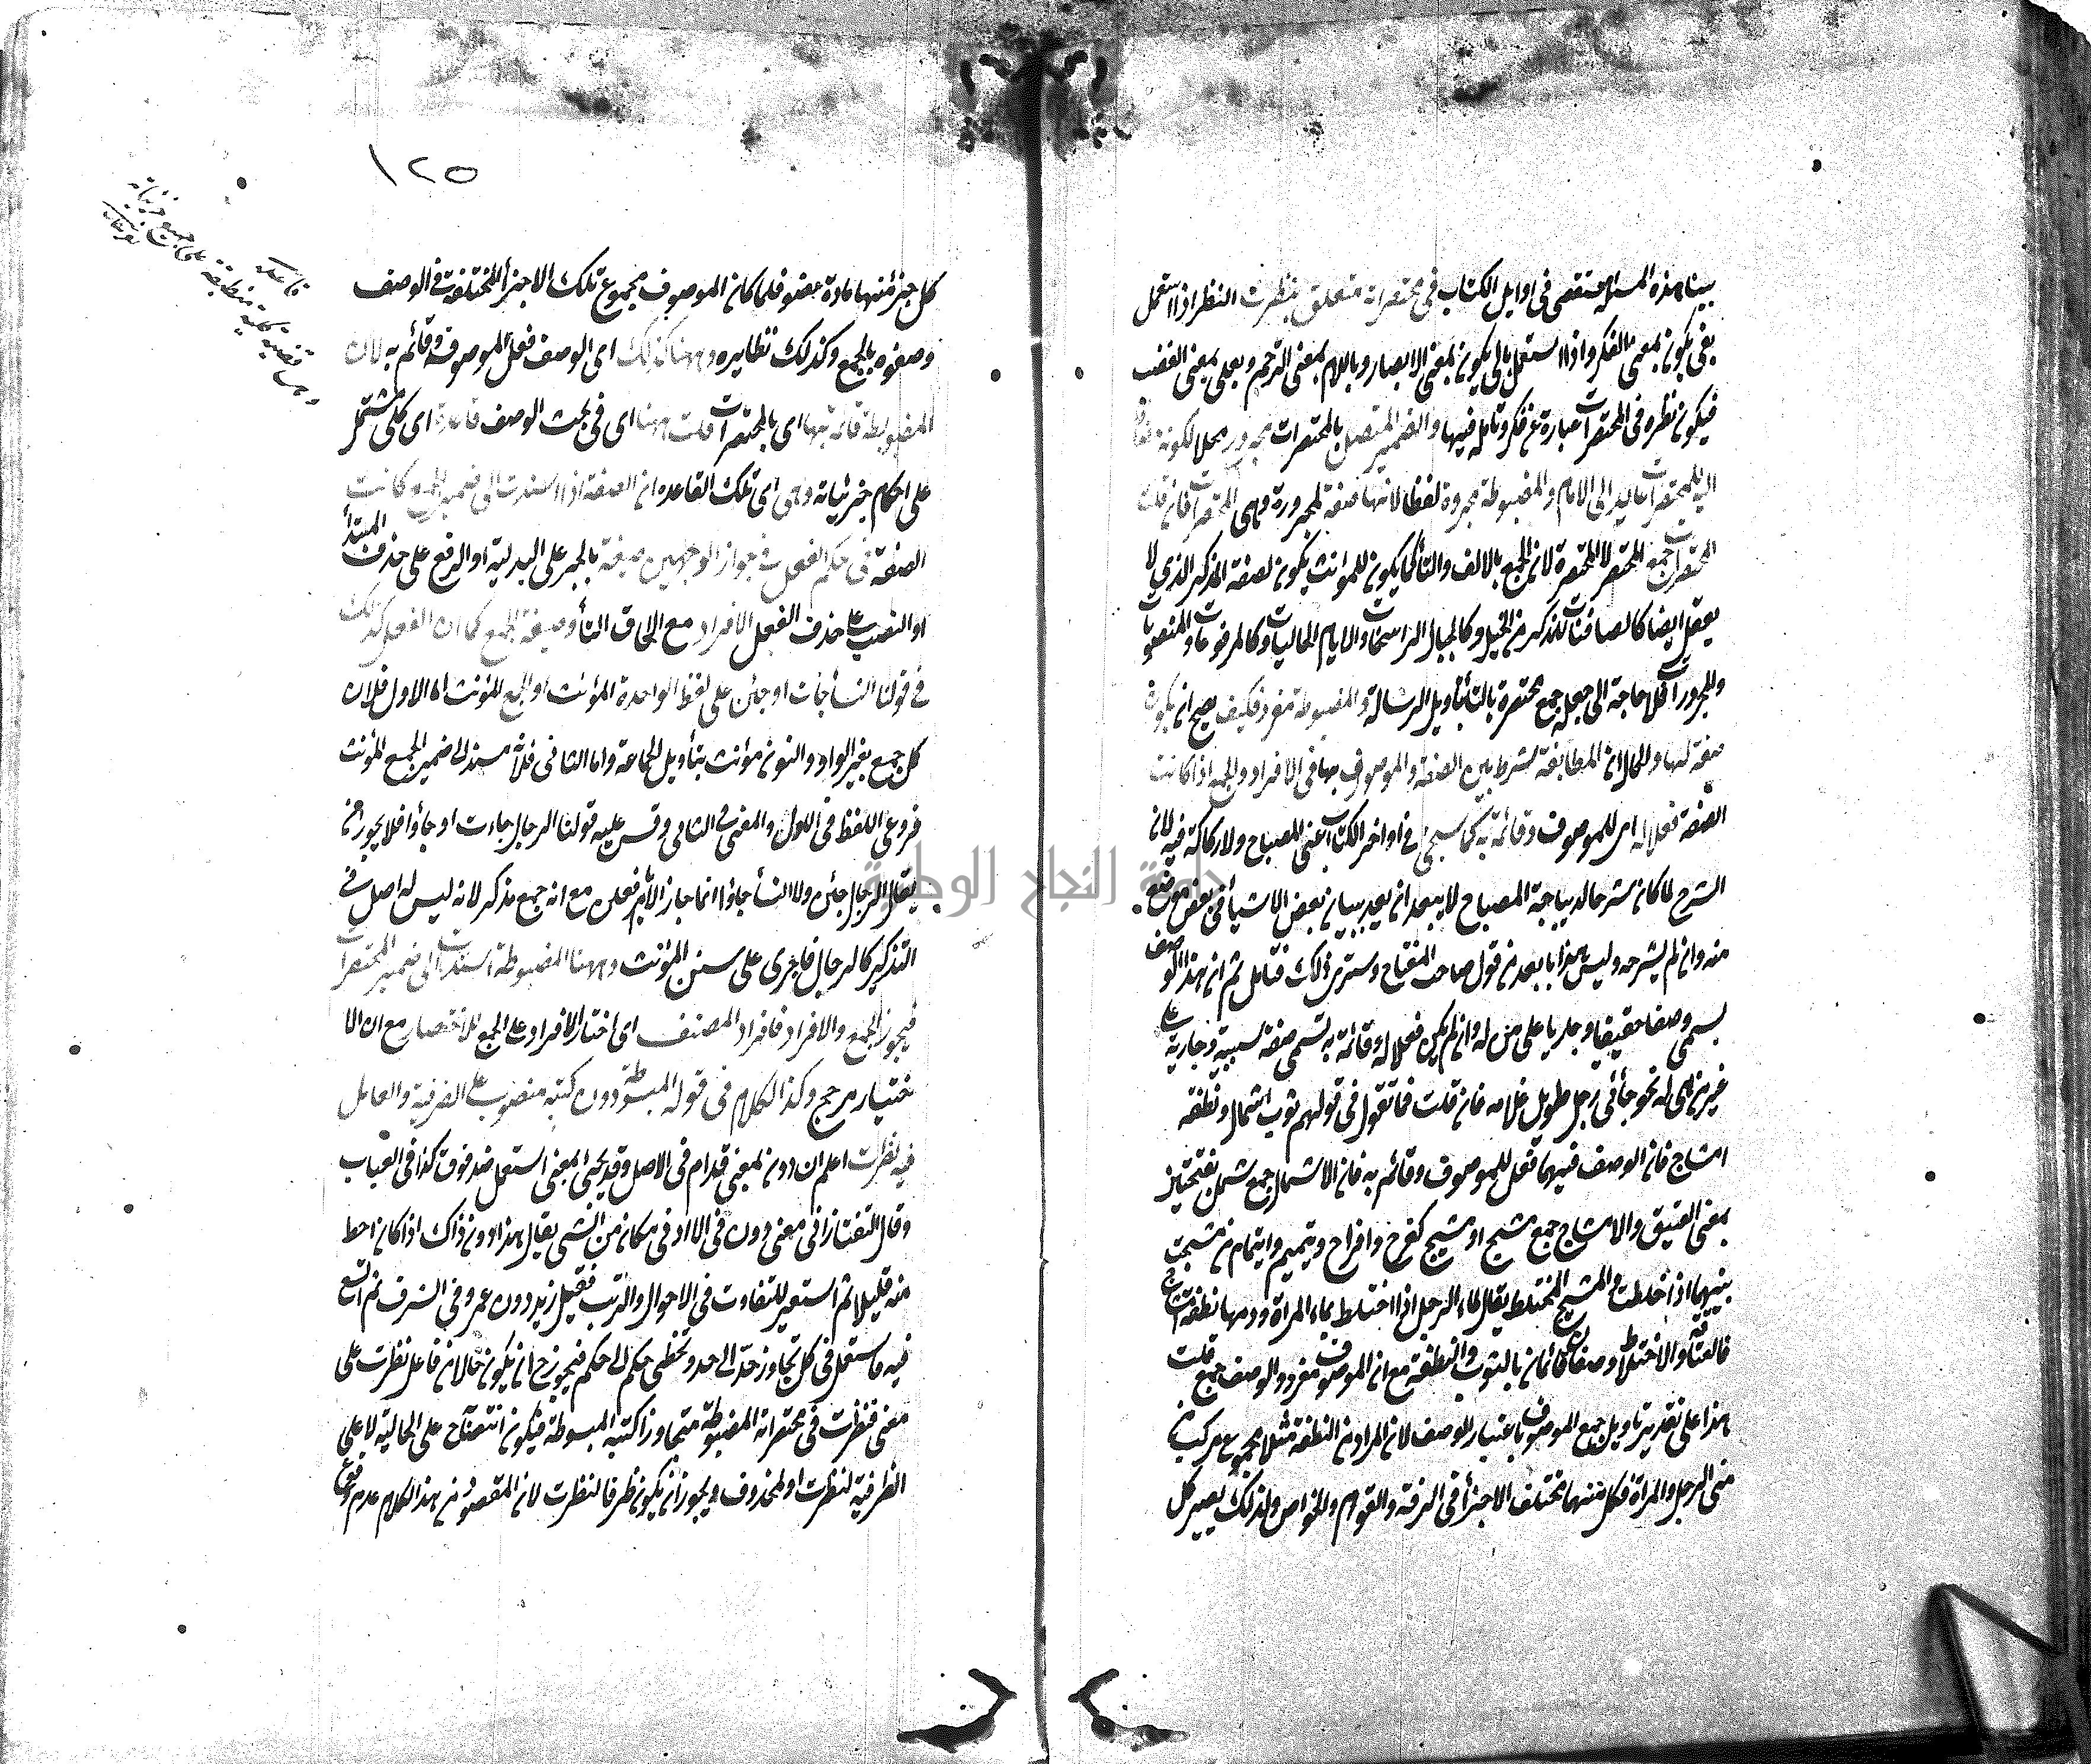 بينا هذه المسئلة مستقصى فى اوايل الكتاب فى مختصراته متعلق بنظرت النظر اذا استعمل
بفى يكون بمعنى الفكر واذا استعمل بالى يكون بمعنى الابصار وباللام بمعنى الترحم وبعلى بمعنى الغضب
فيكون نظره فى المختصرات عبارة عن فكر وتأمل فيها والضمير المتصل بالمختصرات مجرور محلا لكونه مضافا
اليه للمختصرات عايد الى الامام والمضبوطة مجرورة لفظا لانها صفة لمجرورة وهى المختصرات فان قلت
المختصرات جمع المختصر لا المختصرة لان الجمع بالالف والتاء كما يكون للمؤنث يكون لصفة المذكر الذي لا
يعقل ايضا كالصافنات للذكر من الخيل وكالجبال الراسخات والايام الخاليات وكالمرفوعات والمنصوبات
والمجرورات فلا حاجة الى جعله جمع مختصرة بالتاء بتأويل الرسالة والمضبوطة مفرد فكيف يصح ان يكون
صفة لها والحال ان المطابقة شرط بين الصفة والموصوف بها فى الافراد والجمع اذا كانت
الصفة فعلا له اى للموصوف وقائمة به كما سيجئ فى اواخر الكتاب اعنى المصباح ولا ركاكة فيه لان
الشرح لما كان شرحا لديباجة المصباح لا يبعد ان يعيد ببيان بعض الاشياء فى بعض موضع
منه وان لم يشرحه وليس هذا بابعد من قول صاحب المفتاح وسترى ذلك فتأمل ثم ان هذا الوصف
يسمى وصفا حقيقيا وجاريا على من له وان لم يكن فعلا له وقائمة به تسمى صفة سببية وجارية على
غير من هى له نحو جاءنى رجل طويل غلامه فان قلت فما تقول فى قولهم ثوب اشمال ونطفة
امشاج فان الوصف فيهما فعل للموصوف وقائم به فان الاشمال جمع شمل بفتحتين
بمعنى العتيق والامشاج جمع مشج او مشيج كفرح وافراح ويتيم وايتام من مشجت
بينهما اذا خلطت والمشيج المختلط يقال لماء الرجل اذا اختلط بماء المرأة ودمها نطفة امشاج
فالعتاقة والاختلاط وصفان قائمان بالثوب والنطفة مع ان الموصوف مفرد والوصف جمع قلت
هذا على تقدير تأويل جمع الموصوف باعتبار الوصف لان المراد من النطفة مثلا مجموع مركب من
منى الرجل والمرأة فكل منهما مختلف الاجزاء فى الرقة والقوام والخواص ولذلك يصير كل
١٢٥
كل جزء منهما مادة عضو فلما كان الموصوف مجموع تلك الاجزاء المختلفة فى الوصف
وصفوه بالجمع وكذلك نظايره وههنا كذلك اى الوصف فعل الموصوف وقائم به لان
المضبوطة قائمة بها اى بالمختصرات قلت ههنا اى فى بحث الوصف قاعدة اى كلى مشتمل
على احكام جزئياته وهى اى تلك القاعدة ان الصفة اذا اسندت الى ضمير الجمع كانت
الصفة فى حكم الفعل فى جواز الوجهين صيغة بالجر على البدلية او الرفع على حذف المبتدأ
او النصب على حذف الفعل الافراد مع الحاق التاء وصيغة الجمع كما ان الفعل كذلك
فى قولنا النساء جاءت او جئن على لفظ الواحدة المؤنث او الجمع المؤنث اما الاول فلان
كل جمع بغير الواو والنون مؤنث بتأويل الجماعة واما الثانى فلانه مسند الى ضمير الجمع المؤنث
فروعى اللفظ فى الاول والمعنى فى الثانى وقس عليه قولنا الرجال جاءت او جاؤا فلا يجوز ان
يقال الرجال جئن ولا النساء جاؤا انما جاز الايام فعلن مع انه جمع مذكر لانه ليس له اصل فى
التذكير كالرجال فاجرى على سنن المؤنث وههنا المضبوطة اسندت الى ضمير المختصرات
فيجوز الجمع والافراد فافراد المصنف اى اختار الافراد على الجمع للاختصار مع ان الا
ختيار مرجح وكذا الكلام فى قوله المبسوطة دون كتبه منصوب على الظرفية والعامل
فيه نظرت اعلم ان دون بمعنى قدام فى الاصل وقد يجئ بمعنى استعمل ضد فوق كذا فى العباب
وقال التفتازانى معنى دون فى الا ادنى مكان من الشئ يقال هذا دون ذاك اذا كان احط
منه قليلا ثم استعير للتفاوت فى الاحوال والرتب فقيل زيد دون عمرو فى الشرف ثم اتسع
فيه فاستعمل فى كل تجاوز حد الى حد وتخطى حكم الى حكم فيجوز ح ان يكون حالا من فاعل نظرت على
معنى فنظرت فى مختصراته المضبوطة متجاوزا كتبه المبسوطة فيكون انتصابه ح على الحالية لا على
الظرفية لنظرت او لمحذوف ويجوز ان يكون ظرفا لنظرت لان المقصود من هذا الكلام عدم وقوع
قاعدة
وهى قضية كلية منطبقة على جميع جزئياته
جامعة النجاح الوطنية